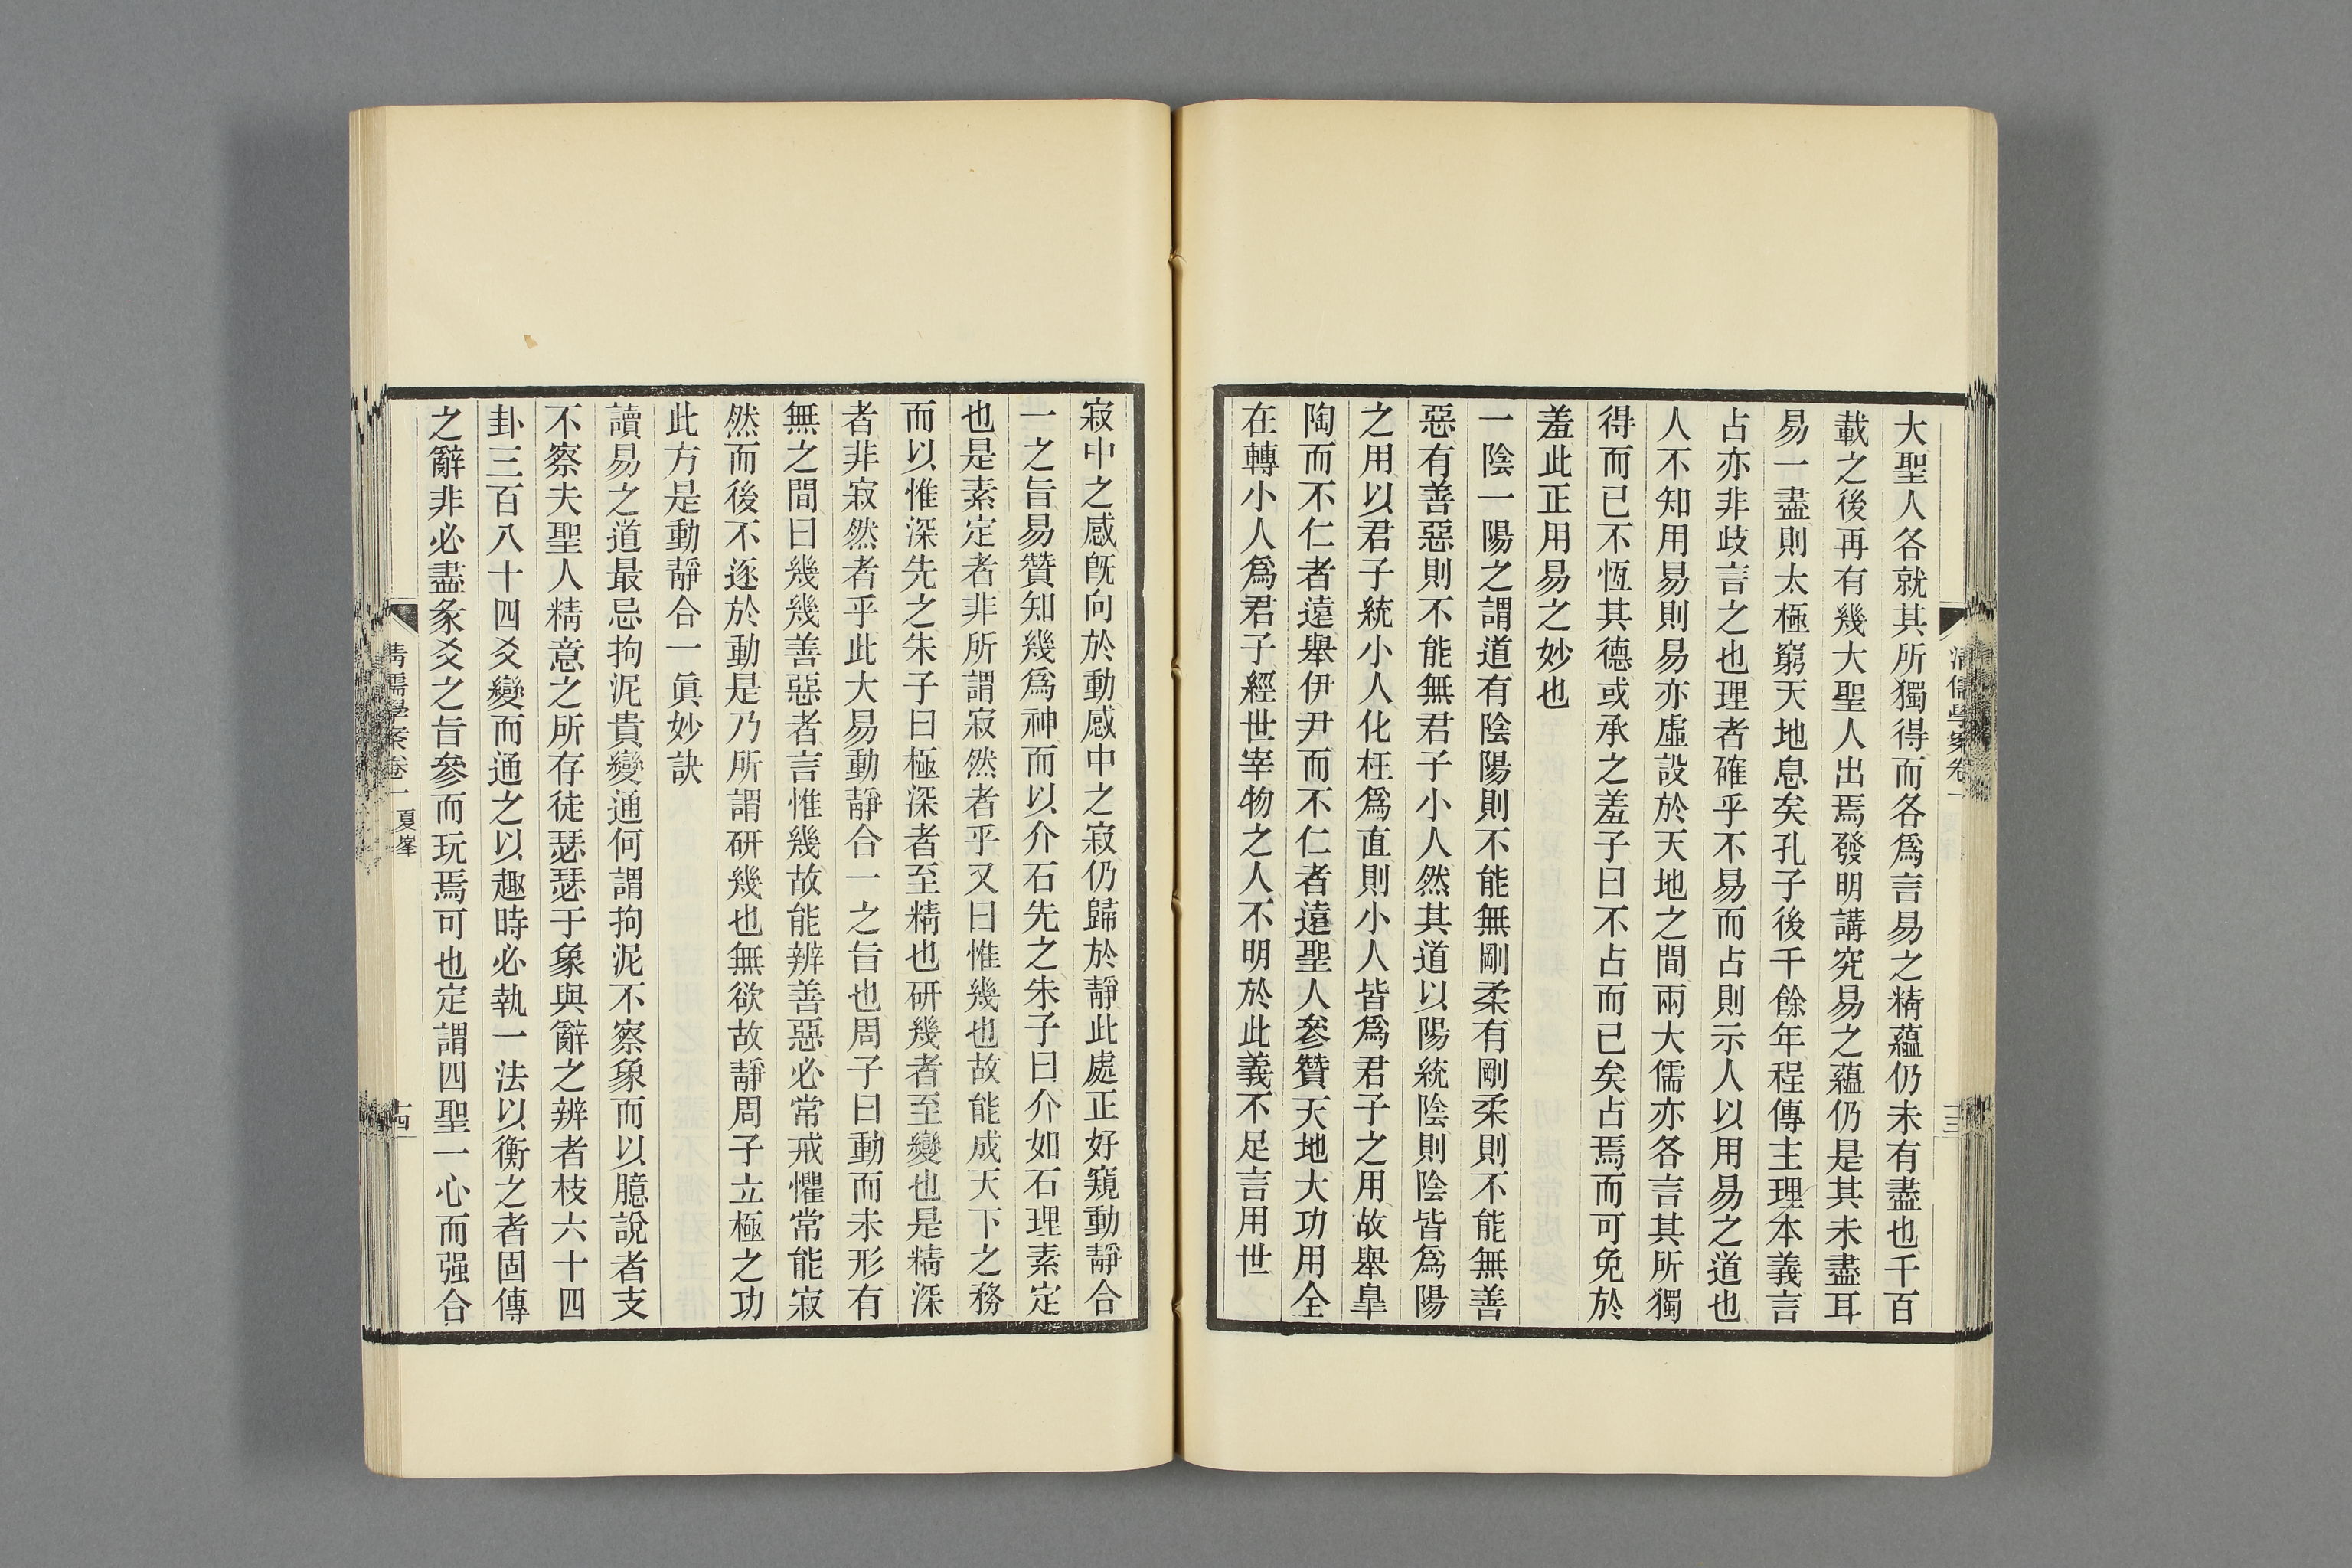 大聖人各就其所獨得而各爲言易之精蘊仍未有盡也千百
載之後再有幾大聖人出焉發明講究易之蘊仍是其未盡耳
易一盡則太極窮天地息矣孔子後千餘年程傳主理本義言
占亦非歧言之也理者確乎不易而占則示人以用易之道也
人不知用易則易亦虛設於天地之間兩大儒亦各言其所獨
得而已不恆其德或承之羞子曰不占而已矣占焉而可免於
羞此正用易之妙也
一陰一陽之謂道有陰陽則不能無剛柔有剛柔則不能無善
惡有善惡則不能無君子小人然其道以陽統陰則陰皆爲陽
之用以君子統小人化枉爲直則小人皆爲君子之用故舉皐
陶而不仁者遠舉伊尹而不仁者遠聖人參贊天地大功用全
在轉小人爲君子經世宰物之人不明於此義不足言用世
清儒學案卷一
十三
寂中之感旣向於動感中之寂仍歸於靜此處正好窺動靜合
一之旨易贊知幾爲神而以介石先之朱子曰介如石理素定
也是素定者非所謂寂然者乎又曰惟幾也故能成天下之務
而以惟深先之朱子曰極深者至精也研幾者至變也是精深
者非寂然者乎此大易動靜合一之旨也周子曰動而未形有
無之間曰幾幾善惡者言惟幾故能辨善惡必常戒懼常能寂
然而後不逐於動是乃所謂研幾也無欲故靜周子立極之功
此方是動靜合一眞妙訣
讀易之道最忌拘泥貴變通何謂拘泥不察象而以臆說者支
不察夫聖人精意之所存徒瑟瑟于象與辭之辨者枝六十四
卦三百八十四爻變而通之以趣時必執一法以衡之者固傳
之辭非必盡彖爻之旨參而玩焉可也定謂四聖一心而强合
清儒學案卷一 夏峯
十四